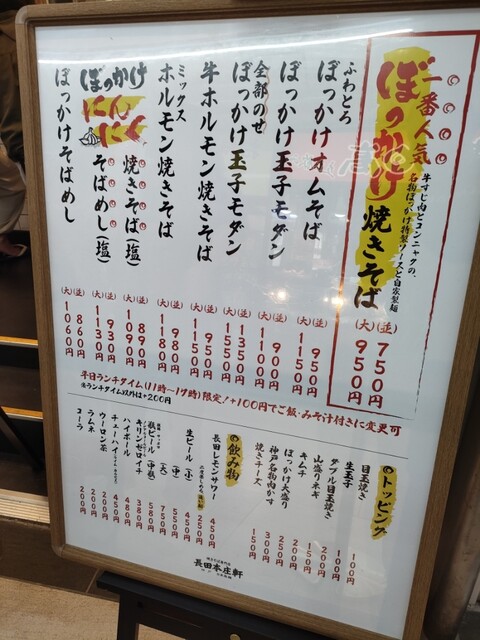 一番人気
ぼっかけ焼きそば
牛すじ肉とコンニャクの、
名物ぼっかけ特製ソースと自家製麺
(並) 750円
(大) 950円
ふわとろ
ぼっかけオムそば
(並) 950円
(大) 1150円
ぼっかけ玉子モダン
(並) 900円
(大) 1100円
全部のせ
ぼっかけ玉子モダン
(並) 1350円
(大) 1550円
牛ホルモン焼きそば
(並) 950円
(大) 1150円
ミックス
ホルモン焼きそば
(並) 980円
(大) 1180円
ぼっかけ
にんにく
焼きそば(塩)
(並) 890円
(大) 1090円
そばめし(塩)
(並) 930円
(大) 1130円
ぼっかけそばめし
(並) 860円
(大) 1060円
平日ランチタイム(11時〜17時)限定!+100円でご飯・みそ汁付きに変更可
※ランチタイム以外は+200円
トッピング
目玉焼き 100円
生玉子 100円
ダブル目玉焼き 200円
山盛りネギ 150円
キムチ 200円
ぼっかけ大盛り 250円
神戸名物肉かす 300円
焼きチーズ 150円
飲み物
長田レモンサワー 450円
250円
生ビール (小) 450円
(中) 550円
(大) 750円
瓶ビール (中瓶) 580円
キリンゼロイチ 380円
ハイボール 450円
チューハイ 480円
ウーロン茶 200円
ラムネ 200円
コーラ 200円
長田本庄軒